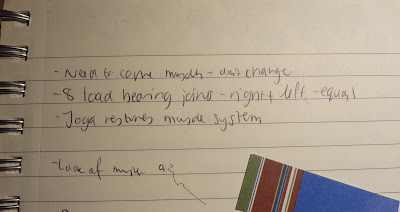 - Need to come muscles - don't change
- 8 load bearing joins - right + left - equal
- Joga restores muscle system
- Lack of